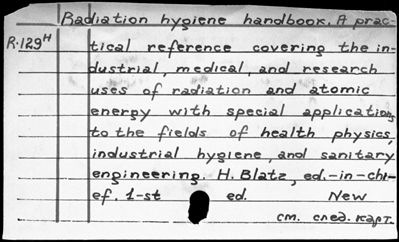 Radiation hygiene handbook. A prac-
R.129H tical reference covering the in-
dustrial, medical, and research
uses of radiation and atomic
energy with special applications
to the fields of health physics,
industrial hygiene, and sanitary
engineering. H. Blatz, ed.-in-chi-
ef. 1-st ed. New
см. след. карт.